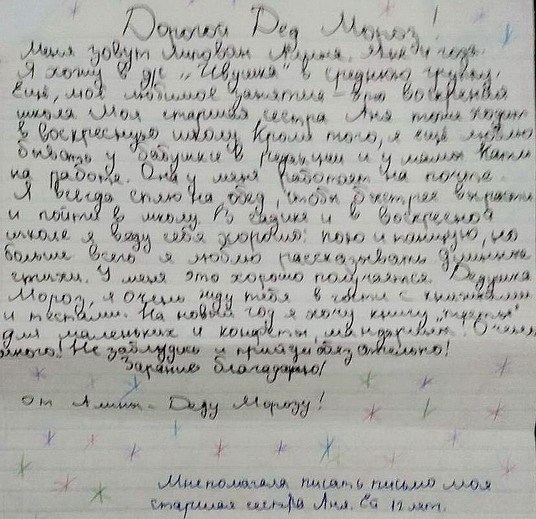 Дорогой Дед Мороз!
Меня зовут Алина. Мне 4 года.
Я хожу в д/с "Ивушка" в среднюю группу.
Ещё, моё любимое занятие - это воскресная
школа. Моя старшая сестра Аня тоже ходит
в воскресную школу. Кроме того, я ещё люблю
бывать у бабушки в редакции и у мамы Кати
на работе. Она у меня работает на почте.
Я всегда сплю на обед, чтобы быстрее вырасти
и пойти в школу. В садике и в воскресной
школе я веду себя хорошо: пою и танцую, но
больше всего я люблю рассказывать душевные
стихи. У меня это хорошо получается. Дедушка
Мороз, я очень жду тебя в гости с книжками
и тестами. На новый год я хочу книгу
для маленьких и конфеты, мандарины! Очень
много! Не заблудись и приходи обязательно!
Заранее благодарю!
от Алины - Деду Морозу!
Мне помогала писать письмо моя
старшая сестра Аня. Ей 12 лет.